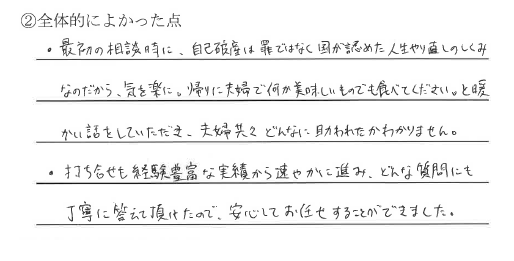 ②全体的によかった点
・最初の相談時に、自己破産は罪ではなく国が認めた人生やり直しのしくみ
なのだから、気を楽に。帰りに夫婦で何か美味しいものでも食べてください。と暖
かい話をしていただき、夫婦共々どんなに助われたかわかりません。
・打ち合せも経験豊富な実績から速やかに進み、どんな質問にも
丁寧に答えて頂けたので、安心してお任せすることができました。